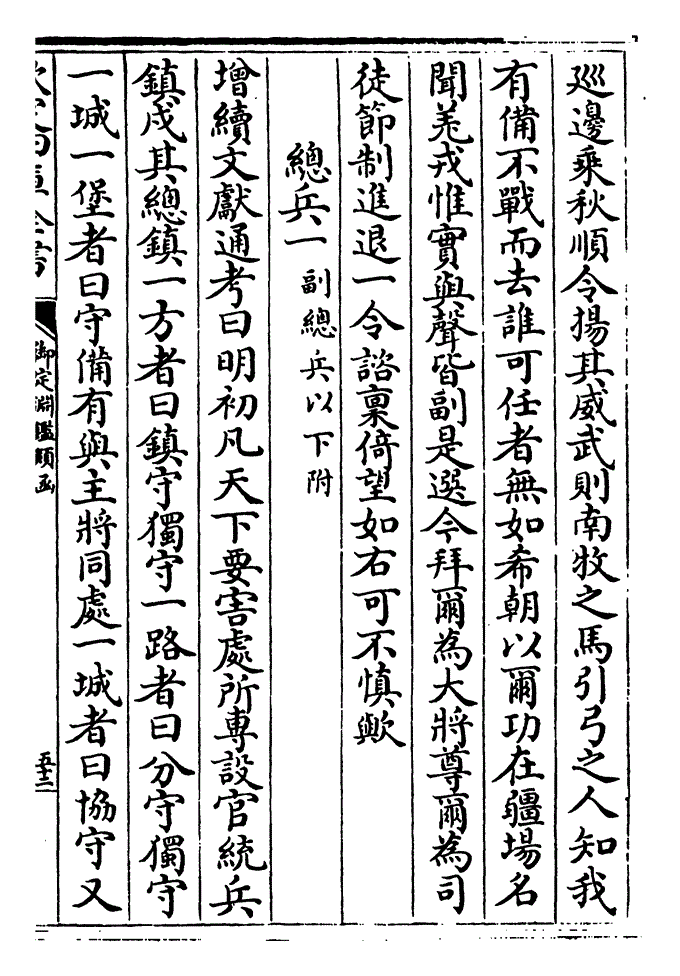 巡邊乗秋順令揚其威武則南牧之馬引弓之人知我
有備不戰而去誰可任者無如希朝以爾功在疆場名
聞羌戎惟實與聲皆副是選今拜爾為大將尊爾為司
徒節制進退一令諮稟倚望如右可不慎歟
總兵一副總兵以下附
增續文獻通考曰明初凡天下要害處所専設官統兵
鎮戍其總鎮一方者曰鎮守獨守一路者曰分守獨守
一城一堡者曰守備有與主將同處一城者曰協守又
欽定四庫全書
御定淵鑑類函
五十二